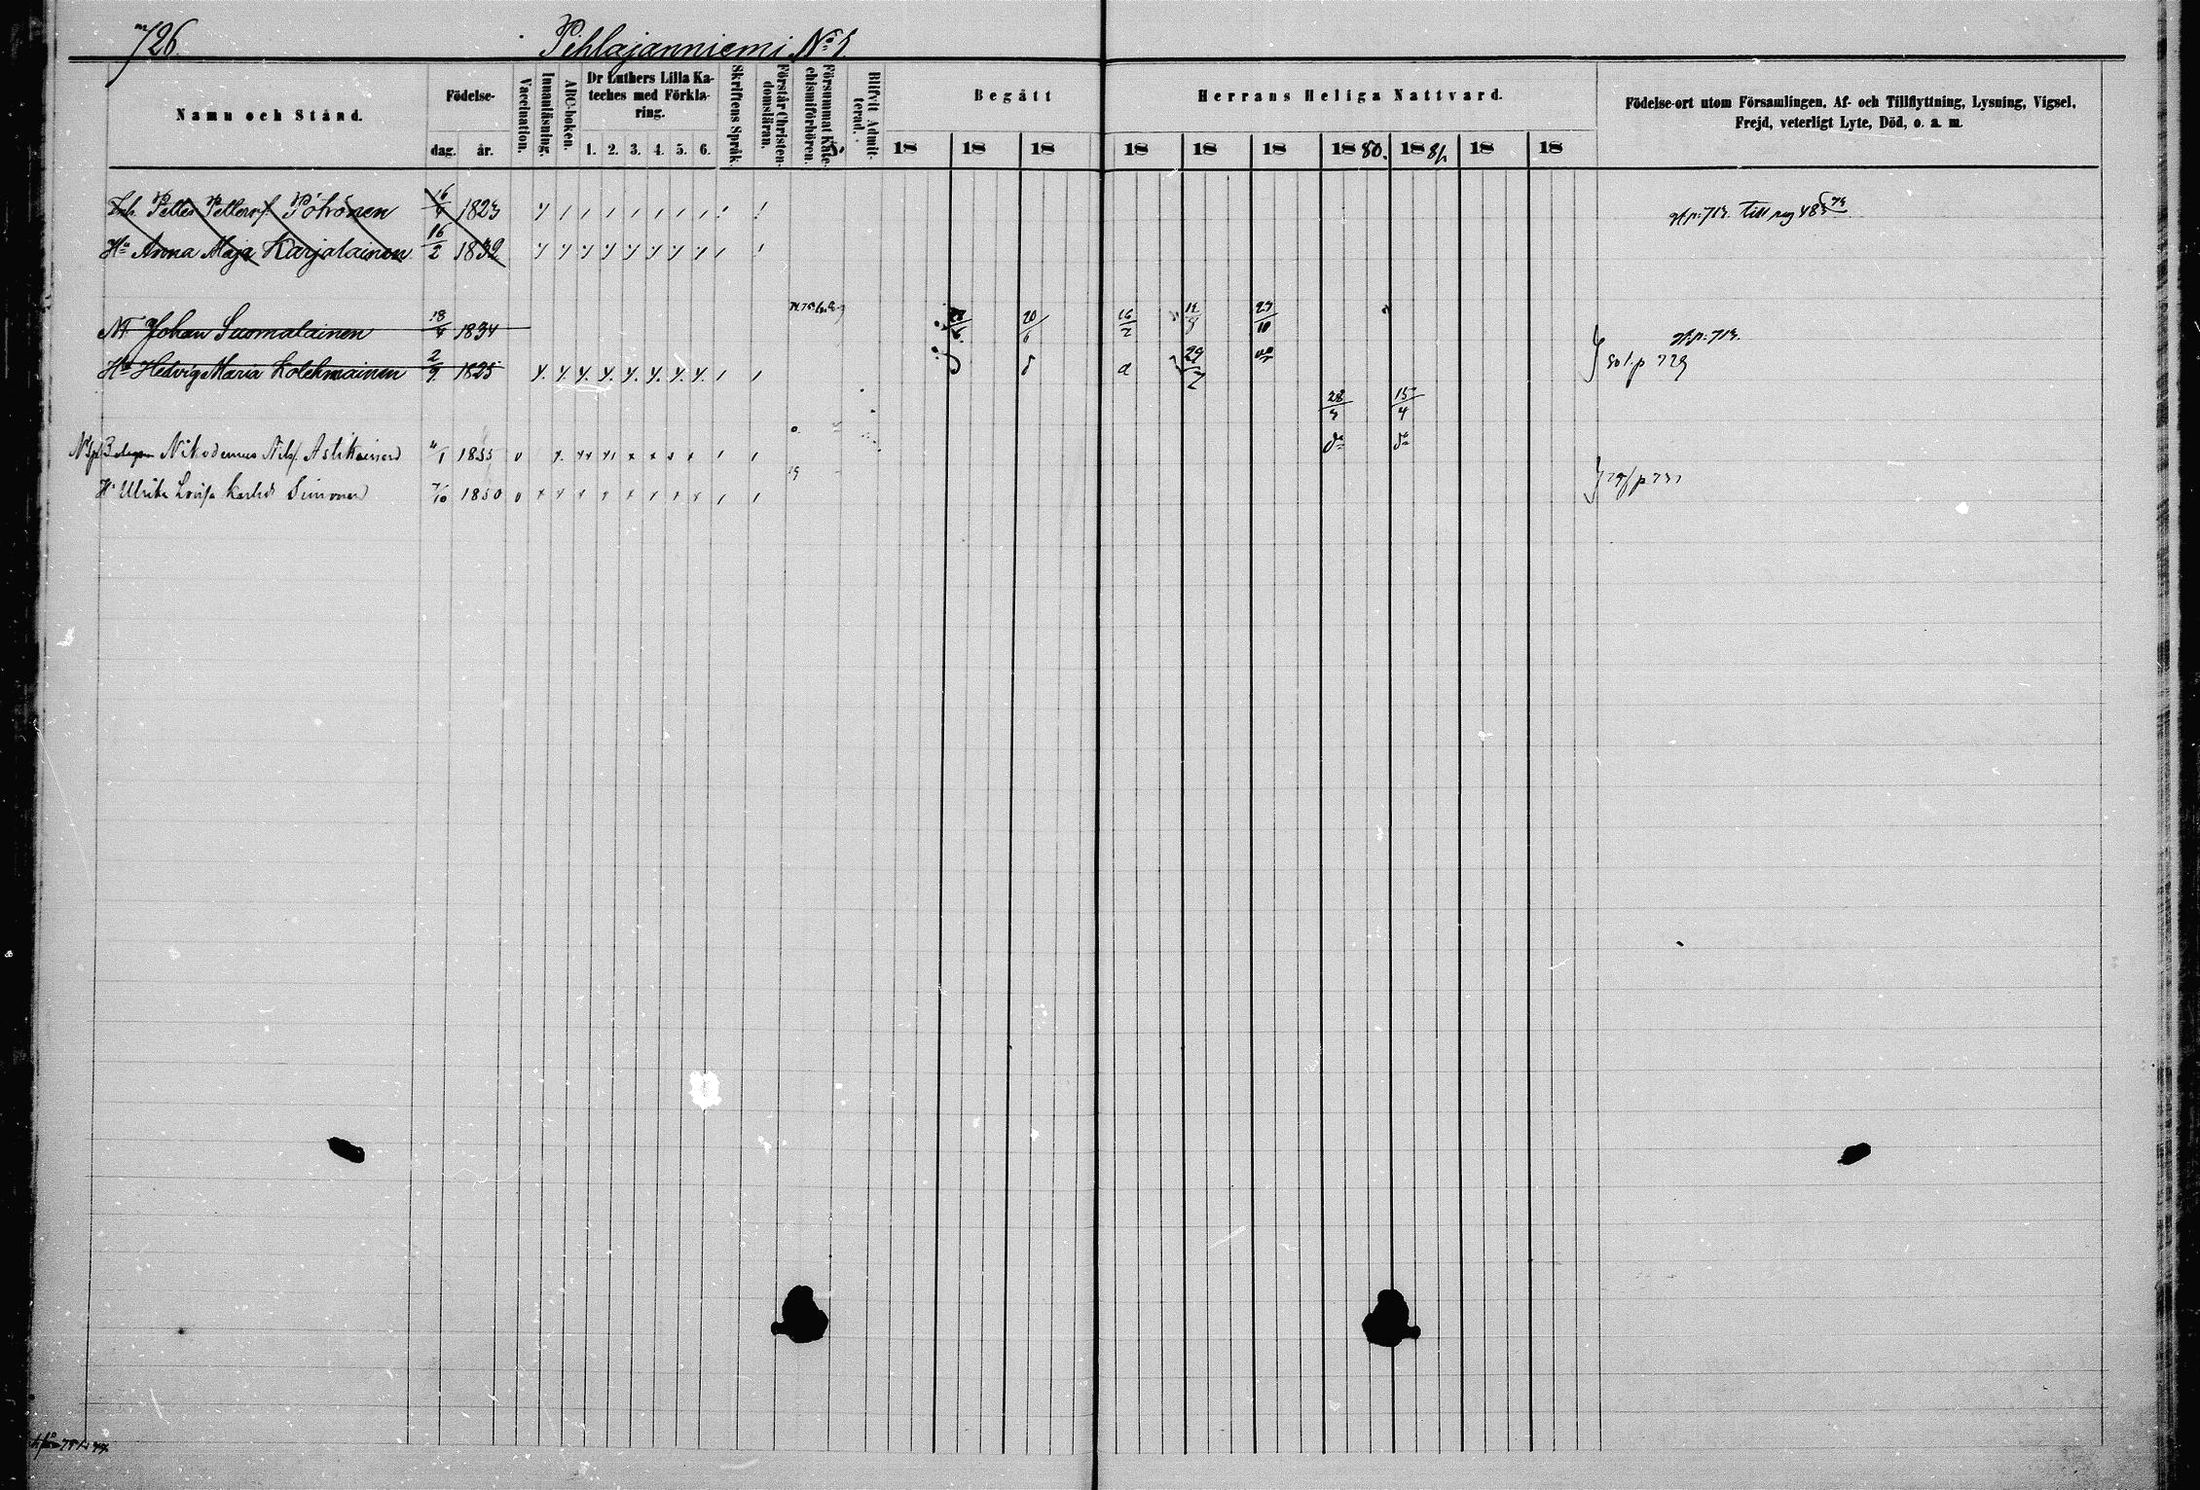 726.
Pihlajanniemi N:o 5.
Namn och Stånd.
Födelse-
dag. år.
Vaccination.
Innanläsning.
ABC-boken.
Dr Luthers Lilla Ka-
teches med Förkla-
ring.
1. 2. 3. 4. 5. 6.
Skriftens Språk.
Förstår Christen-
domsläran.
Försummat Kate-
chismiförhören.
Blifvit Admit-
terad.
Begått Herrans Heliga Nattvard.
18 18 18 18 18 18 1880. 1881. 18 18
Födelse-ort utom Församlingen, Af- och Tillflyttning, Lysning, Vigsel,
Frejd, veterligt Lyte, Död, o. a. m.
Inh. Petter Petterss. Pöhönen 16/4 1823
Hu Anna Maja Karjalainen 16/2 1832
Johan Suomalainen 18/4 1834 20/6 16/2 23/10
Hu Hedvig Maria Kolehmainen 2/9 1825 80/p 729
28/3 15/4
Nikodemus Nilss. Astikainen 1855 do do
Hu Ulrika Lovisa Karlsd. Simonen 7/10 1850